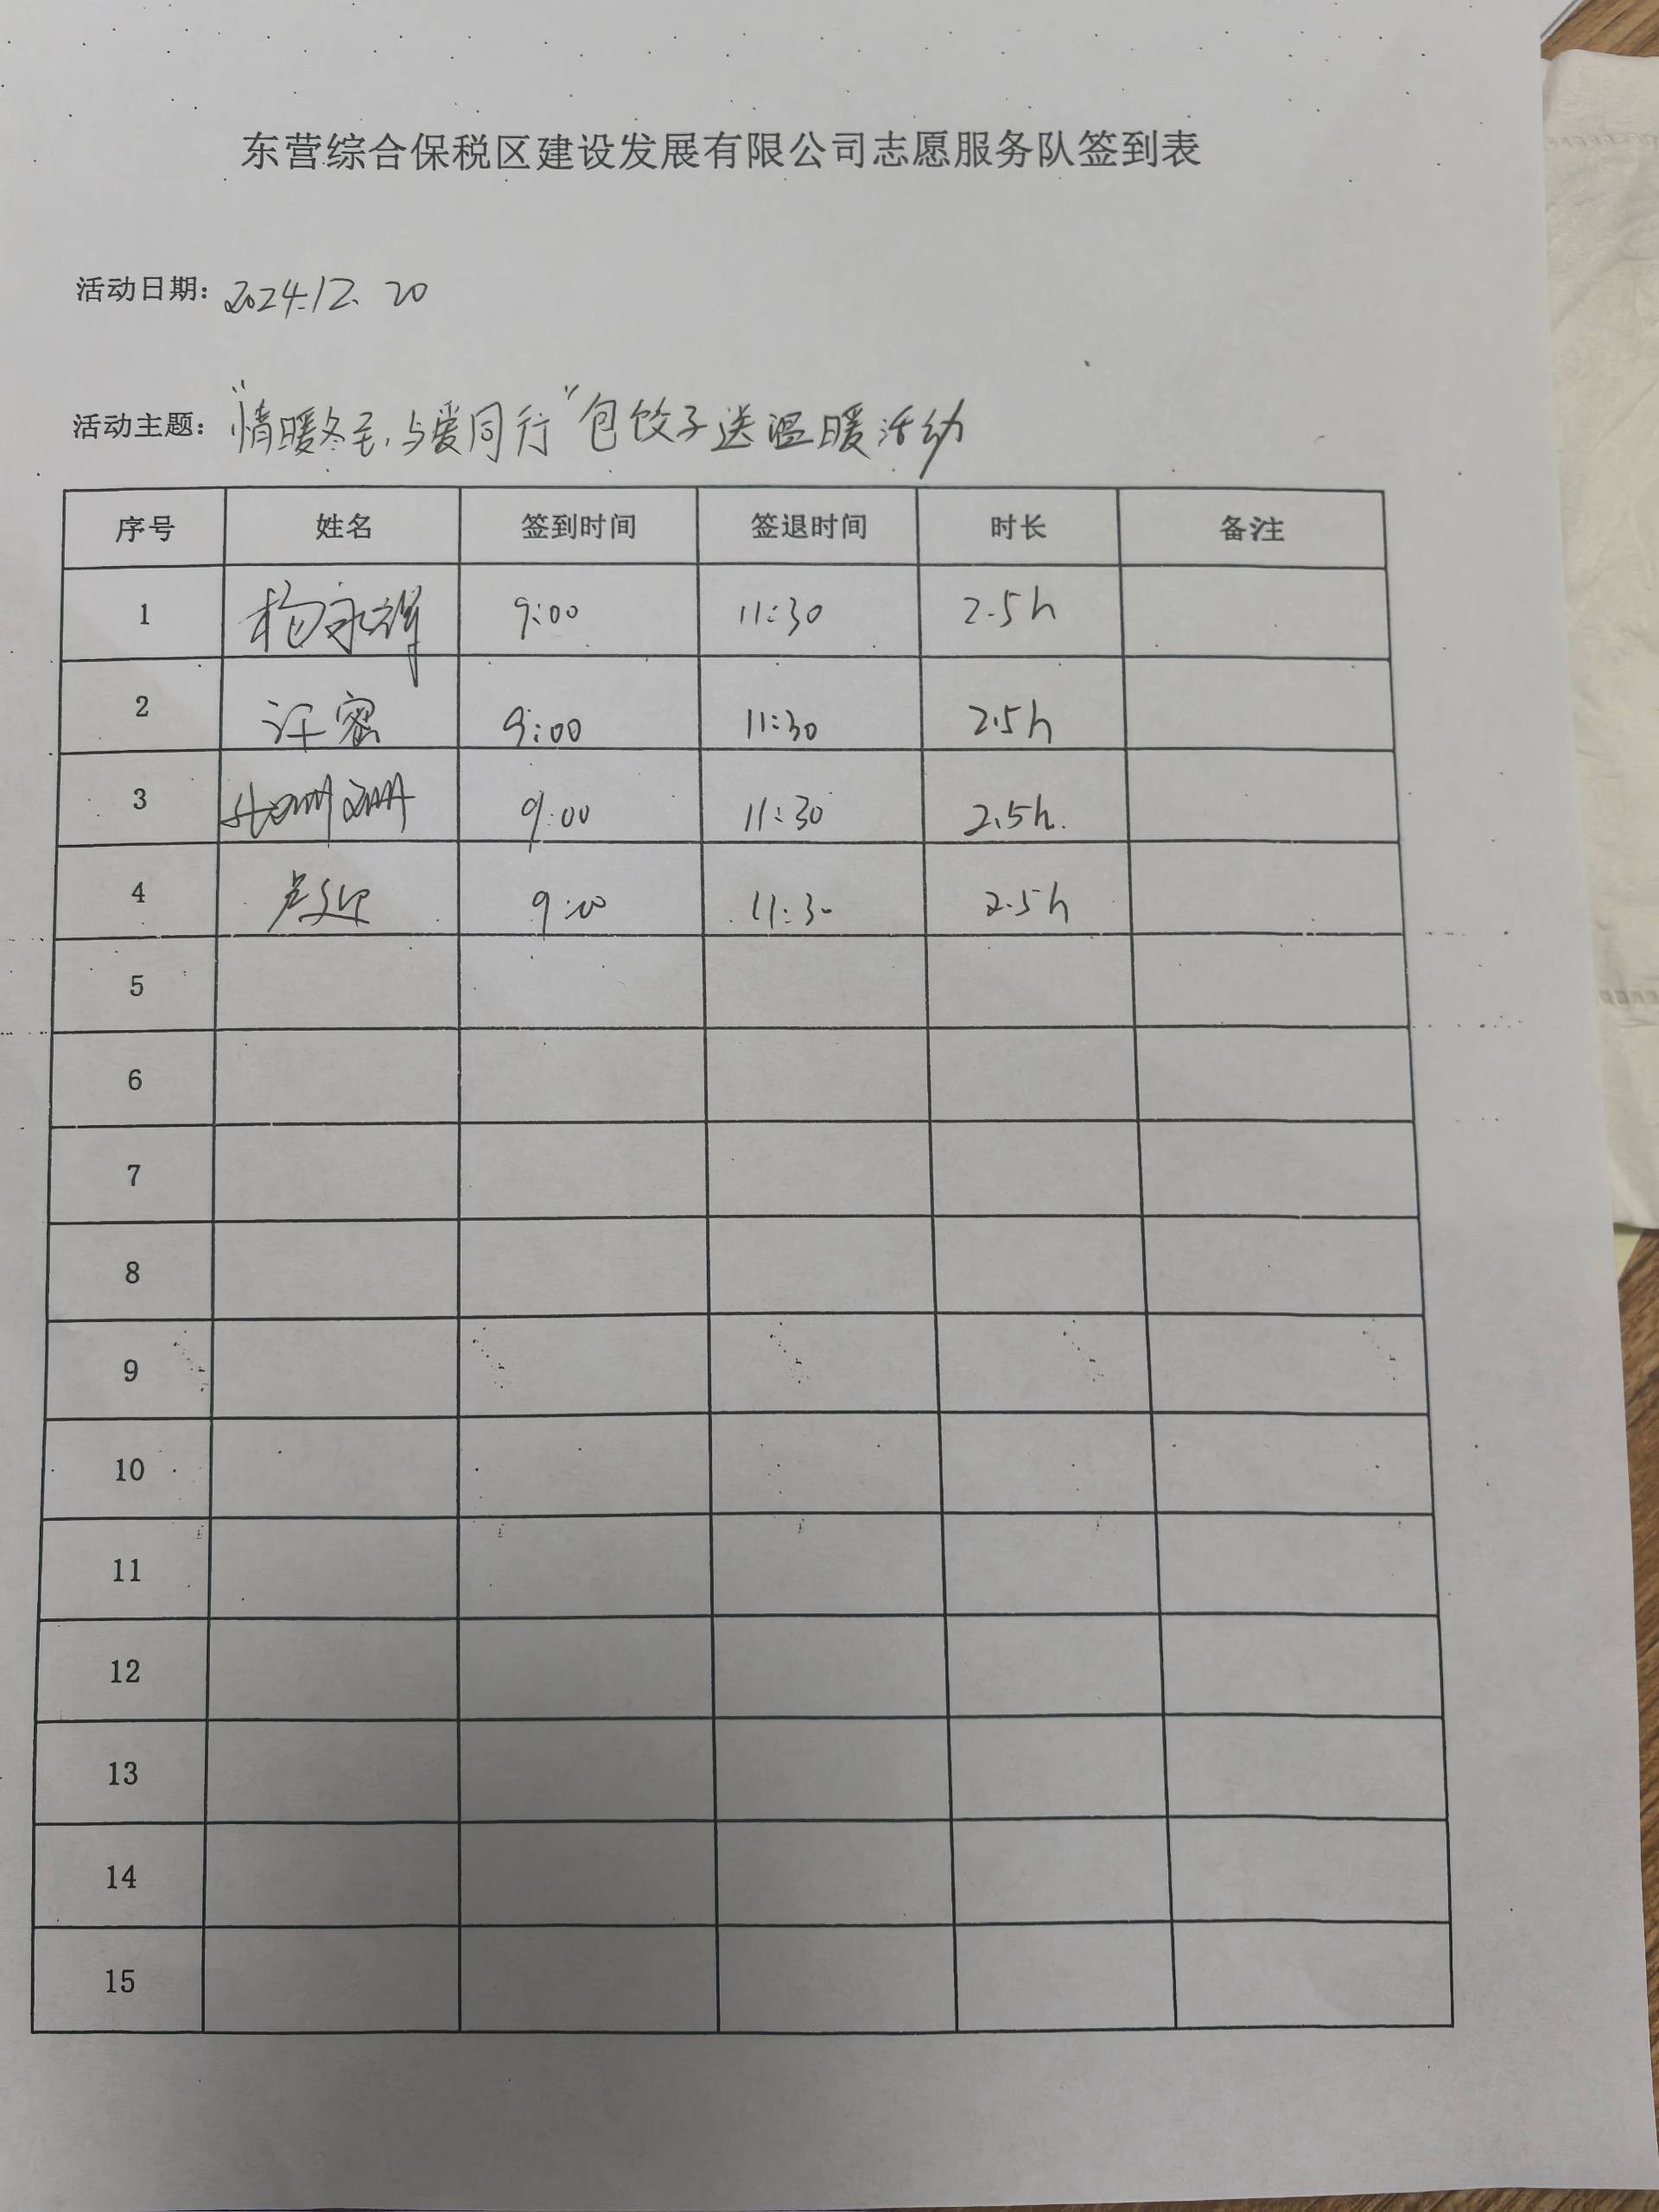 东营综合保税区建设发展有限公司志愿服务队签到表
活动日期：2024.12.20
活动主题：“情暖冬至，与爱同行”包饺子送温暖活动
序号 姓名 签到时间 签退时间 时长 备注
1 杨永辉 9:00 11:30 2.5h
2 许密 9:00 11:30 2.5h
3 9:00 11:30 2.5h.
4 卢迎 9:00 11:30 2.5h
5
6
7
8
9
10
11
12
13
14
15